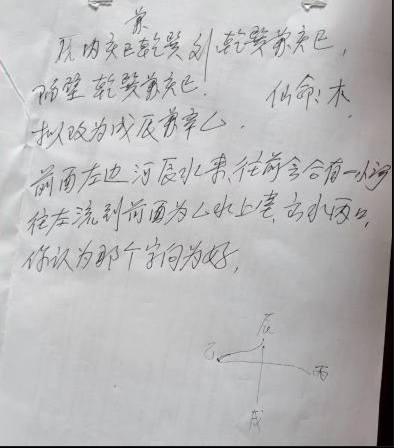 兼
瓦内亥巳乾巽到乾巽兼亥巳,
隔壁乾巽兼亥巳. 仙命:木
拟改为戌辰兼辛乙.
前面左边河辰水来,往前会合有一小河
往左流到前面为乙水上堂,去水丙口,
你认为那个字向为好,
辰
乙
丙
戌